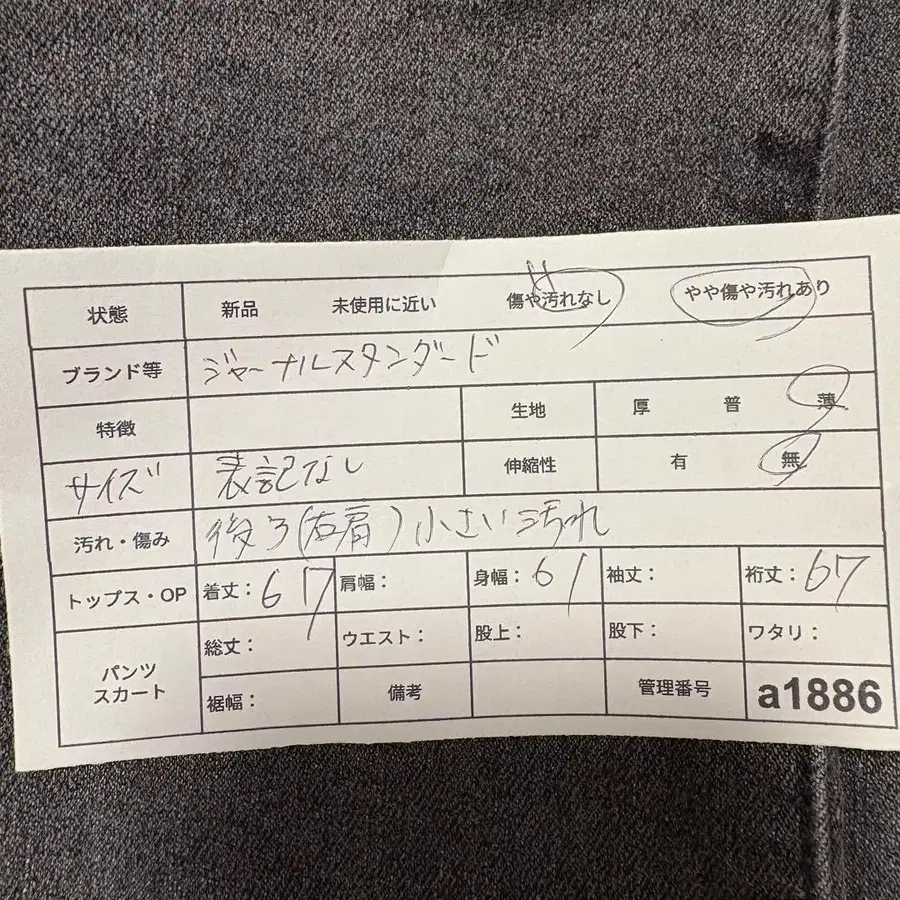 状態 新品 未使用に近い 傷や汚れなし やや傷や汚れあり
ブランド等 ジャーナルスタンダード
特徴 生地 厚 普 薄
サイズ 表記なし 伸縮性 有 無
汚れ・傷み 後ろ(右肩)小さい汚れ
トップス・OP 着丈:67 肩幅: 身幅:61 袖丈: 裄丈:67
パンツ スカート 総丈: ウエスト: 股上: 股下: ワタリ:
裾幅: 備考 管理番号 a1886